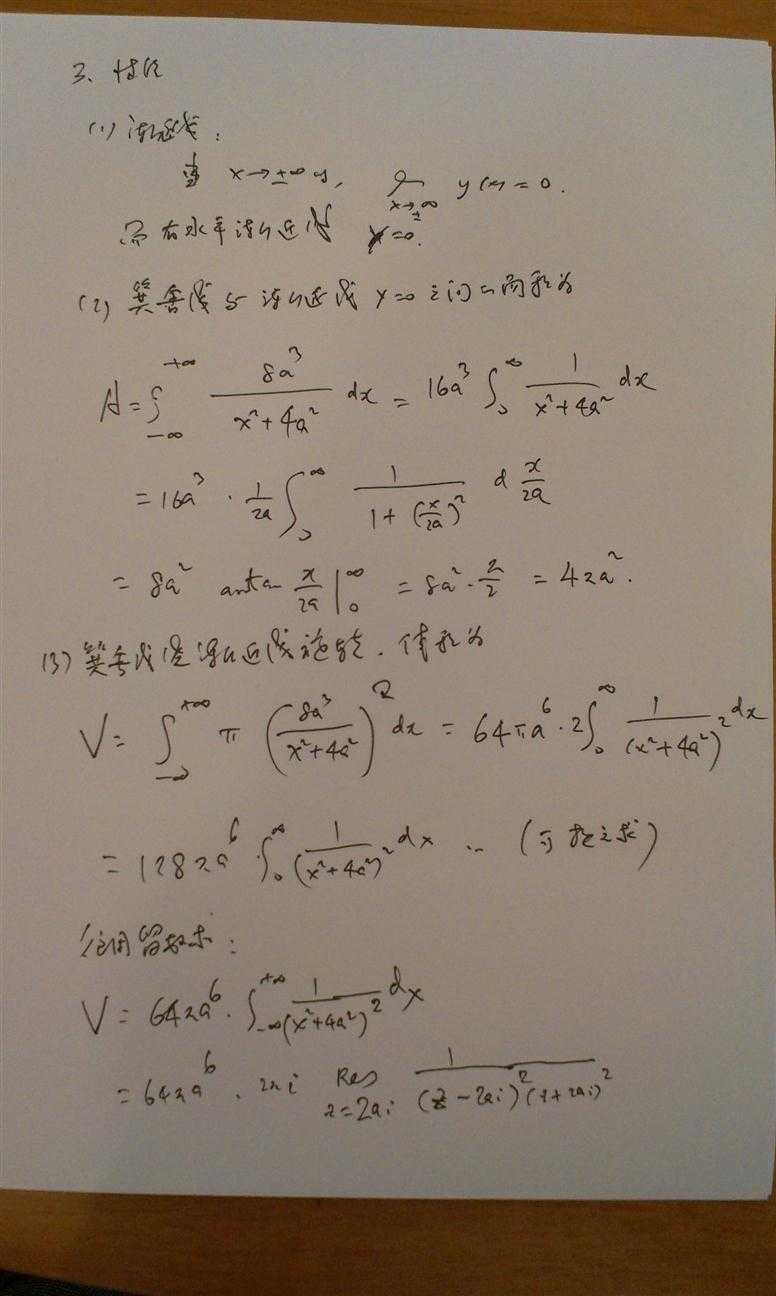 3、性质
(1) 渐近线:
当 x→±∞时, lim_{x→±∞} y(x) = 0.
而有水平渐近线 y=0.
(2) 箕舌线与渐近线 y=0 之间的面积为
A = ∫_{-∞}^{+∞} \frac{8a³}{x²+4a²} dx = 16a³ ∫_0^∞ \frac{1}{x²+4a²} dx
= 16a³ · \frac{1}{2a} ∫_0^∞ \frac{1}{1+(\frac{x}{2a})²} d \frac{x}{2a}
= 8a² arctan \frac{x}{2a} |_0^∞ = 8a² · \frac{π}{2} = 4πa².
(3) 箕舌线绕渐近线旋转, 体积为
V = ∫_{-∞}^{+∞} π (\frac{8a³}{x²+4a²})² dx = 64πa⁶ · 2∫_0^∞ \frac{1}{(x²+4a²)²} dx
= 128πa⁶ · ∫_0^∞ \frac{1}{(x²+4a²)²} dx
用留数求:
V = 64πa⁶ · ∫_{-∞}^{+∞} \frac{1}{(x²+4a²)²} dx
= 64πa⁶ · 2πi Res_{z=2ai} \frac{1}{(z-2ai)²(z+2ai)²}